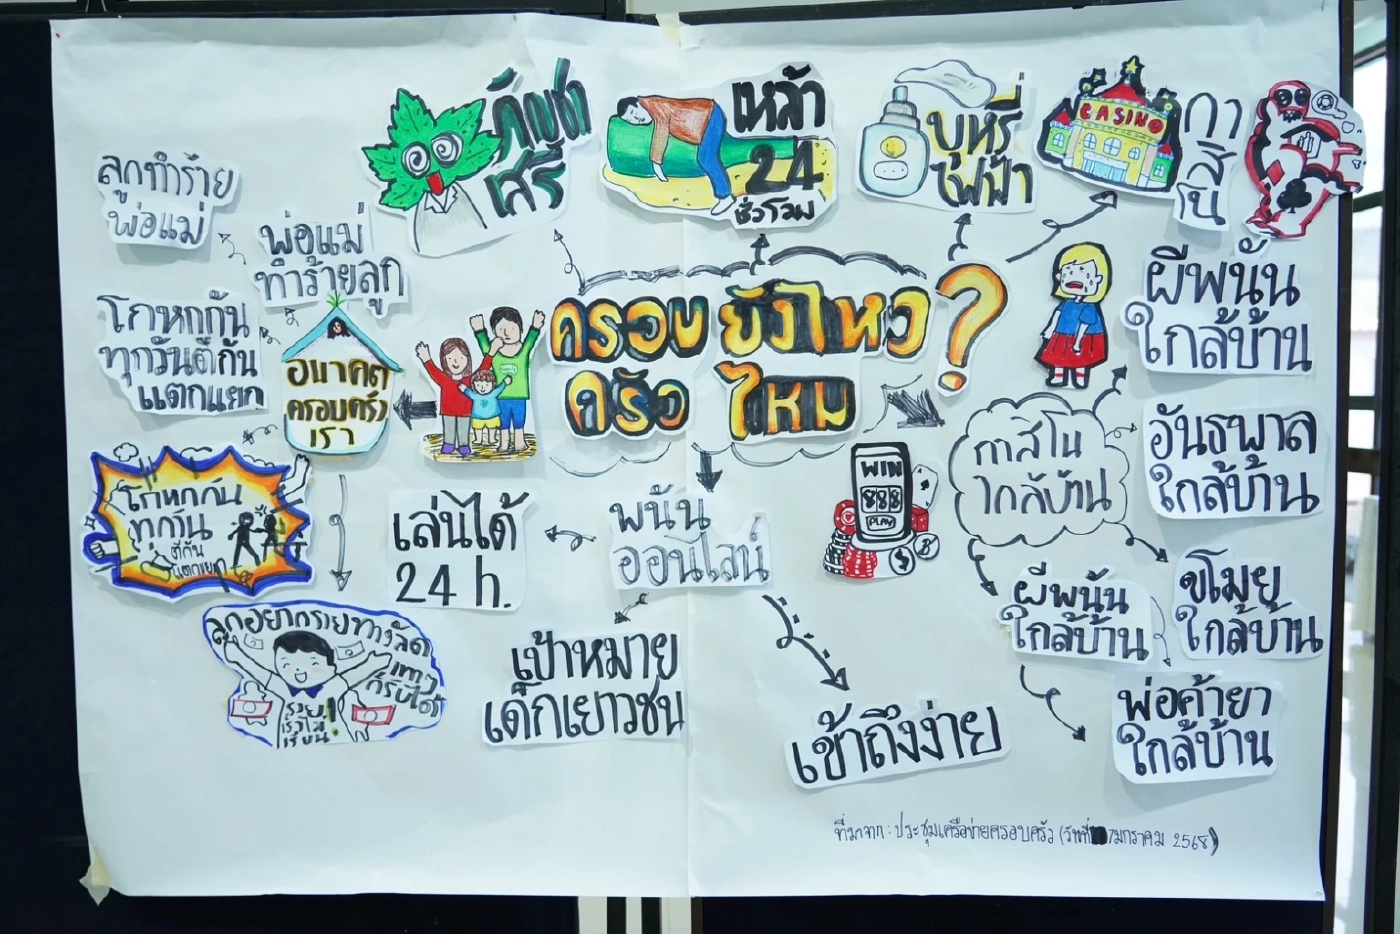 กัญชา
เสรี
เหล้า
24
ชั่วโมง
บุหรี่
ไฟฟ้า
CASINO
กา
สิ
โน
ลูกทำร้าย
พ่อแม่
พ่อแม่
ทำร้ายลูก
โกหกกัน
ทุกวันตีกัน
แตกแยก
อนาคต
ครอบครัว
เรา
ครอบ
ครัว
ยังไหว
ไหม
?
ผีพนัน
ใกล้บ้าน
กาสิโน
ใกล้บ้าน
อันธพาล
ใกล้บ้าน
WIN
888
PLAY
โกหกกัน
ทุกวัน
ตีกัน
แตกแยก
เล่นได้
24 h.
พนัน
ออนไลน์
ผีพนัน
ใกล้บ้าน
ขโมย
ใกล้บ้าน
ลูกอยากรวยทางลัด
เทาๆ
ก็รับได้
รวย!
เราไม่
เรียน!
เป้าหมาย
เด็กเยาวชน
เข้าถึงง่าย
พ่อค้ายา
ใกล้บ้าน
ที่มาจาก : ประชุมเครือข่ายครอบครัว (วันที่ 7 มกราคม 2568)